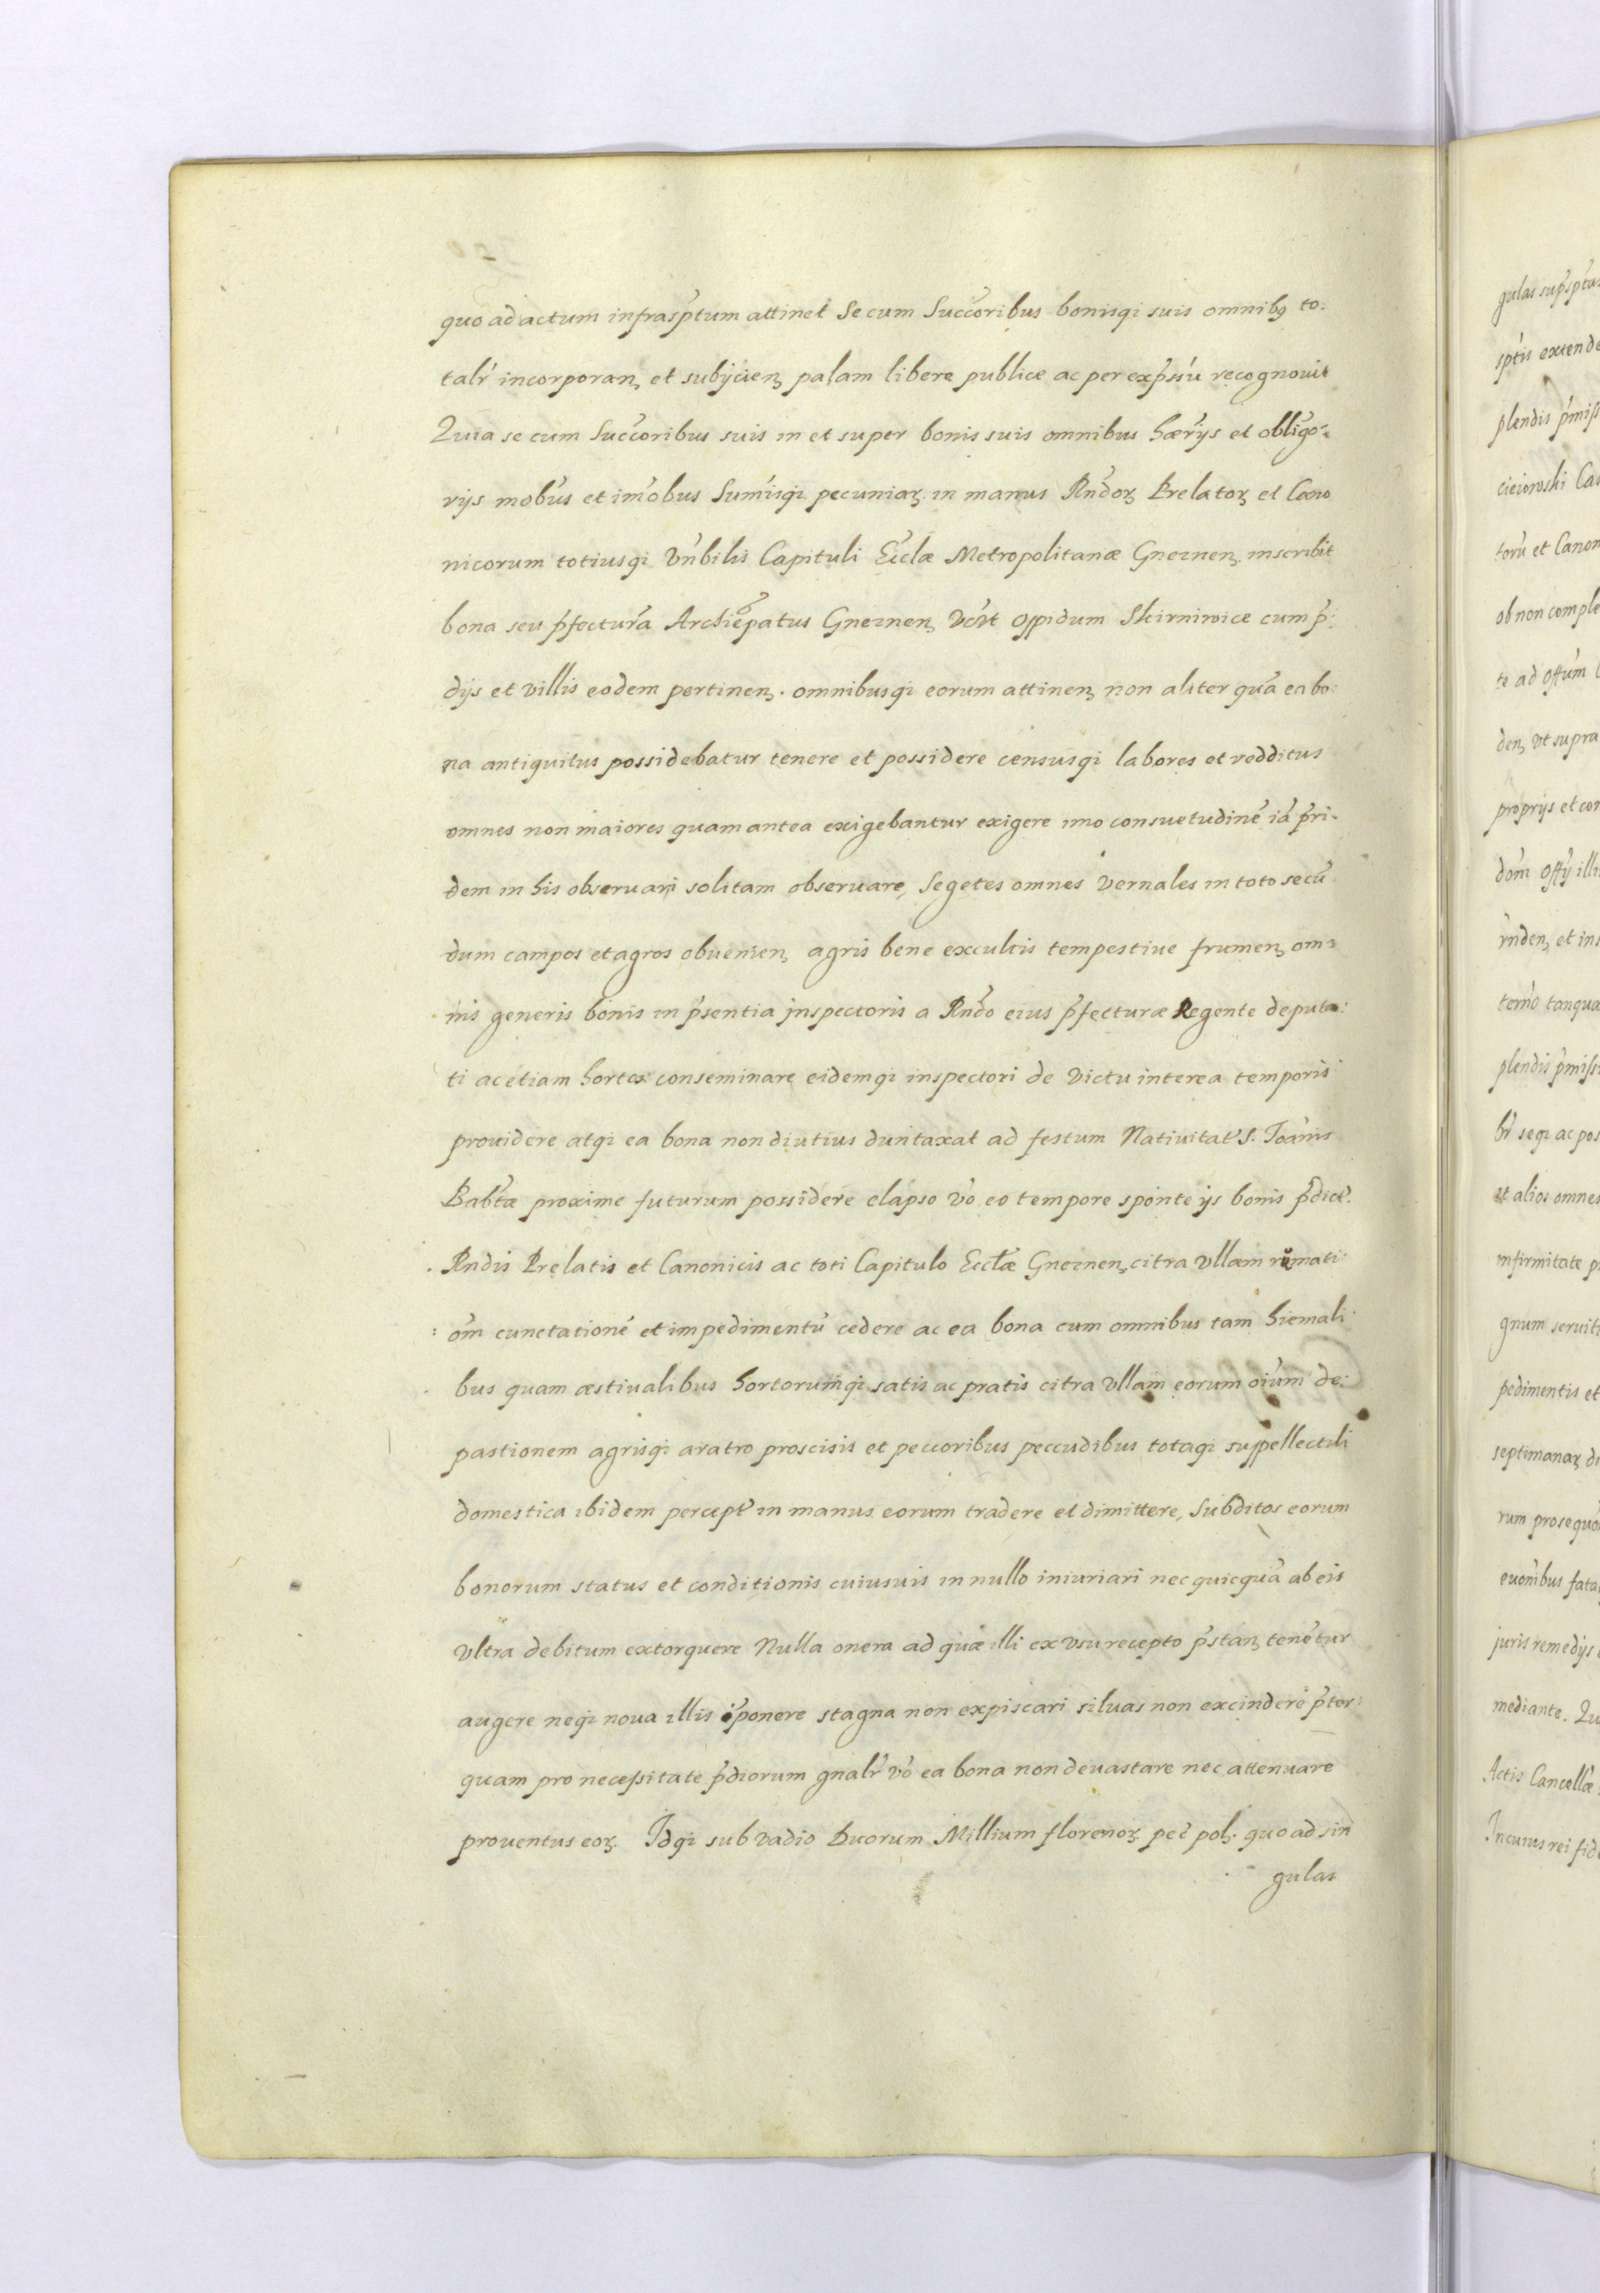 quo ad actum infrasp̃tum attinet Se cum Succ̃oribus bonisqꝫ suis omnibꝫ to:
talr̃ incorporanꝫ et subijcienꝫ palam libere publice ac per exp̃ssũ recognovit
Quia se cum Succ̃oribus suis in et super bonis suis omnibus hær̃ijs et obligo:
rijs mob̃us et im̃obus Sum̃isqꝫ pecuniaꝝ in manus Rñdoꝝ Prelatoꝝ et Cano
nicorum totiusqꝫ Vñbilis Capituli Ecc̃læ Metropolitanæ Gneznenꝫ inscribit
bona seu p̃fectur̃a Archiẽpatus Gneznenꝫ vc̃ꝫt Oppidum Skirniwice cum p̃:
dijs et villis eodem pertinenꝫ. omnibusqꝫ eorum attinenꝫ non aliter quã ea bo:
na antiquitus possidebatur tenere et possidere censusqꝫ labores et redditus
omnes non maiores quam antea exigebantur exigere imo consuetudinẽ iã p̃ri:
dem in his obseruari solitam obseruare, Segetes omnes vernales in toto secũ
dum campos et agros obuenienꝫ agris bene excultis tempestiue frumenꝫ om:
nis generis bonis in p̃sentia jnspectoris a Rñdo eius p̃fecturæ Regente deputa:
ti ac etiam hortos conseminare eidemqꝫ inspectori de victu interea temporis
prouidere atqꝫ ea bona non diutius duntaxat ad festum Natiuitat̃ S. Joãnis
Bab̃tæ proxime futurum possidere elapso võ eo tempore sponte ijs bonis p̃dict̃.
Rñdis Prelatis et Canonicis ac toti Capitulo Eccl̃æ Gneznenꝫ citra vllam rẽmati:
om̃ cunctationẽ et impedimentũ cedere ac ea bona cum omnibus tam hiemali
bus quam æstiualibus hortorumqꝫ satis ac pratis citra vllam eorum oĩum de:
pastionem agrisqꝫ aratro proscisis et peccoribus peccudibus totaqꝫ suppellectili
domestica ibidem percept̃ in manus eorum tradere et dimittere, Subditos eorum
bonorum status et conditionis cuiusuis in nullo iniuriari nec quicquã ab eis
vltra debitum extorquere Nulla onera ad quæ illi ex vsu recepto p̃stanꝫ tenẽtur
augere neqꝫ noua illis ĩponere stagna non expiscari siluas non excindere p̃ter:
quam pro necessitate p̃diorum gñalr̃ võ ea bona non deuastare nec attenuare
prouentus eoꝝ. Idqꝫ sub vadio Duorum Millium florenoꝝ pec̃ polꝫ. quo ad sin
gulas
gulas sup̃sp̃tas
sp̃tis extende
plendis p̃miss
torũ et Canon
ob non comple
te ad Off̃um
denꝫ vt supra
proprijs et con
dom̃ Off̃ij illi
rñdenꝫ et ins
tem̃o tanqua
plendis p̃miss
br̃ seqꝫ ac pos
et alios omnes
infirmitate p
gnum seruiti
pedimentis et
septimanaꝝ di
rum prosequo
juris remedijs
mediante. Qu
Actis Cancellæ
In cuius rei fid